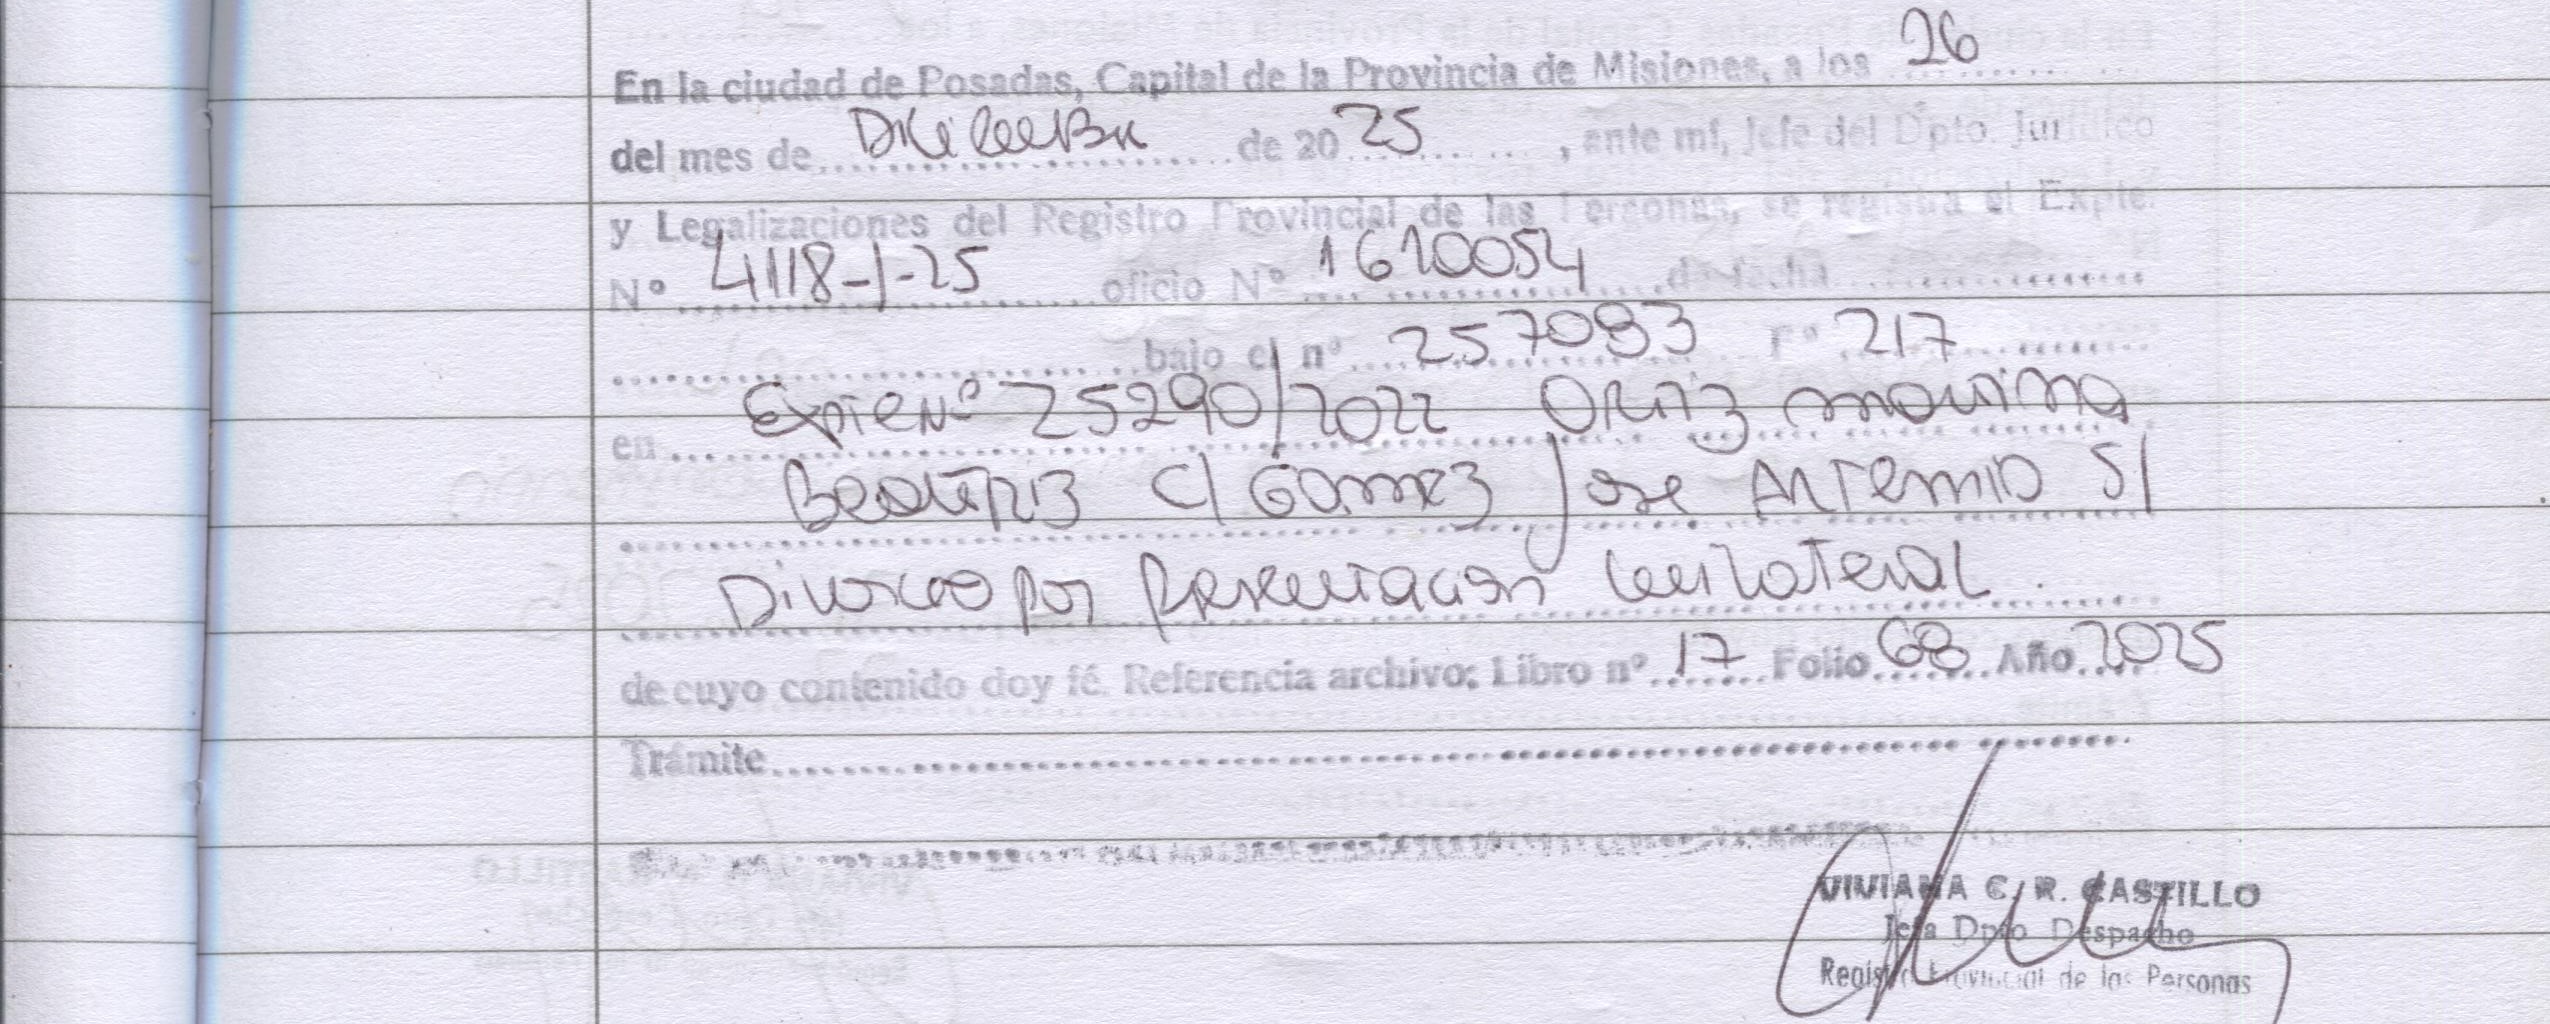 En la ciudad de Posadas, Capital de la Provincia de Misiones, a los 26
del mes de Diciembre de 2025, ante mí, Jefe del Dpto. Jurídico
y Legalizaciones del Registro Provincial de las Personas, se registra el Expte.
Nº 4118-J-25 oficio Nº 1610054 de fecha
bajo el nº 257093 Fº 217
en Expte Nº 25290/2022 Ortiz
Beatriz c/ Gomez Jose Artemio s/
Divorcio por Presentacion Unilateral.
de cuyo contenido doy fé. Referencia archivo: Libro nº 17 Folio 68 Año 2025
Trámite
VIVIANA C. R. CASTILLO
Jefa Dpto Despacho
Registro Provincial de las Personas